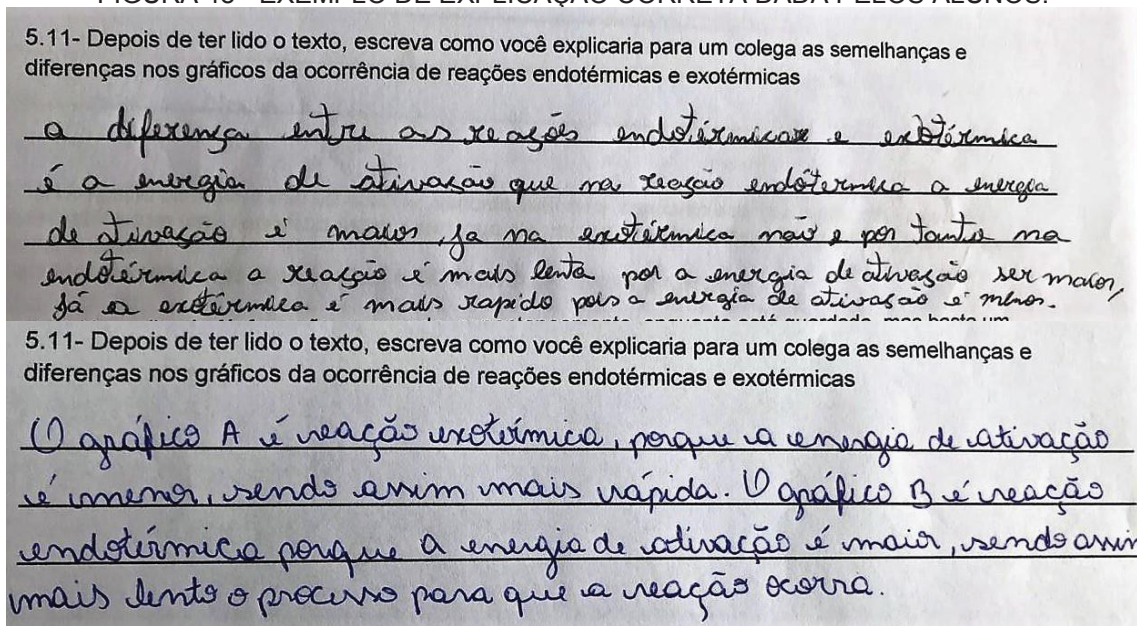 FIGURA 48 - EXEMPLO DE EXPLICAÇÃO CORRETA DADA PELOS ALUNOS.
5.11- Depois de ter lido o texto, escreva como você explicaria para um colega as semelhanças e
diferenças nos gráficos da ocorrência de reações endotérmicas e exotérmicas
a diferença entre as reações endotérmicas e exotérmica
é a energia de ativação que na reação endotermica a energia
de ativação é maior, ja na exotérmica não e por tanto na
endotérmica a reação é mais lenta por a energia de ativação ser maior,
já a exotérmica é mais rapido pois a energia de ativação é menor.
enquanto está guardado, mas basta um
5.11- Depois de ter lido o texto, escreva como você explicaria para um colega as semelhanças e
diferenças nos gráficos da ocorrência de reações endotérmicas e exotérmicas
O gráfico A é reação exotérmica, porque a energia de ativação
é menor, sendo assim mais rápida. O gráfico B é reação
endotérmica porque a energia de ativação é maior, sendo assim
mais lento o processo para que a reação ocorra.